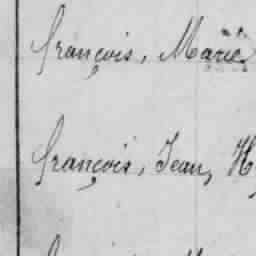 françois, Marie
françois, Jean, H